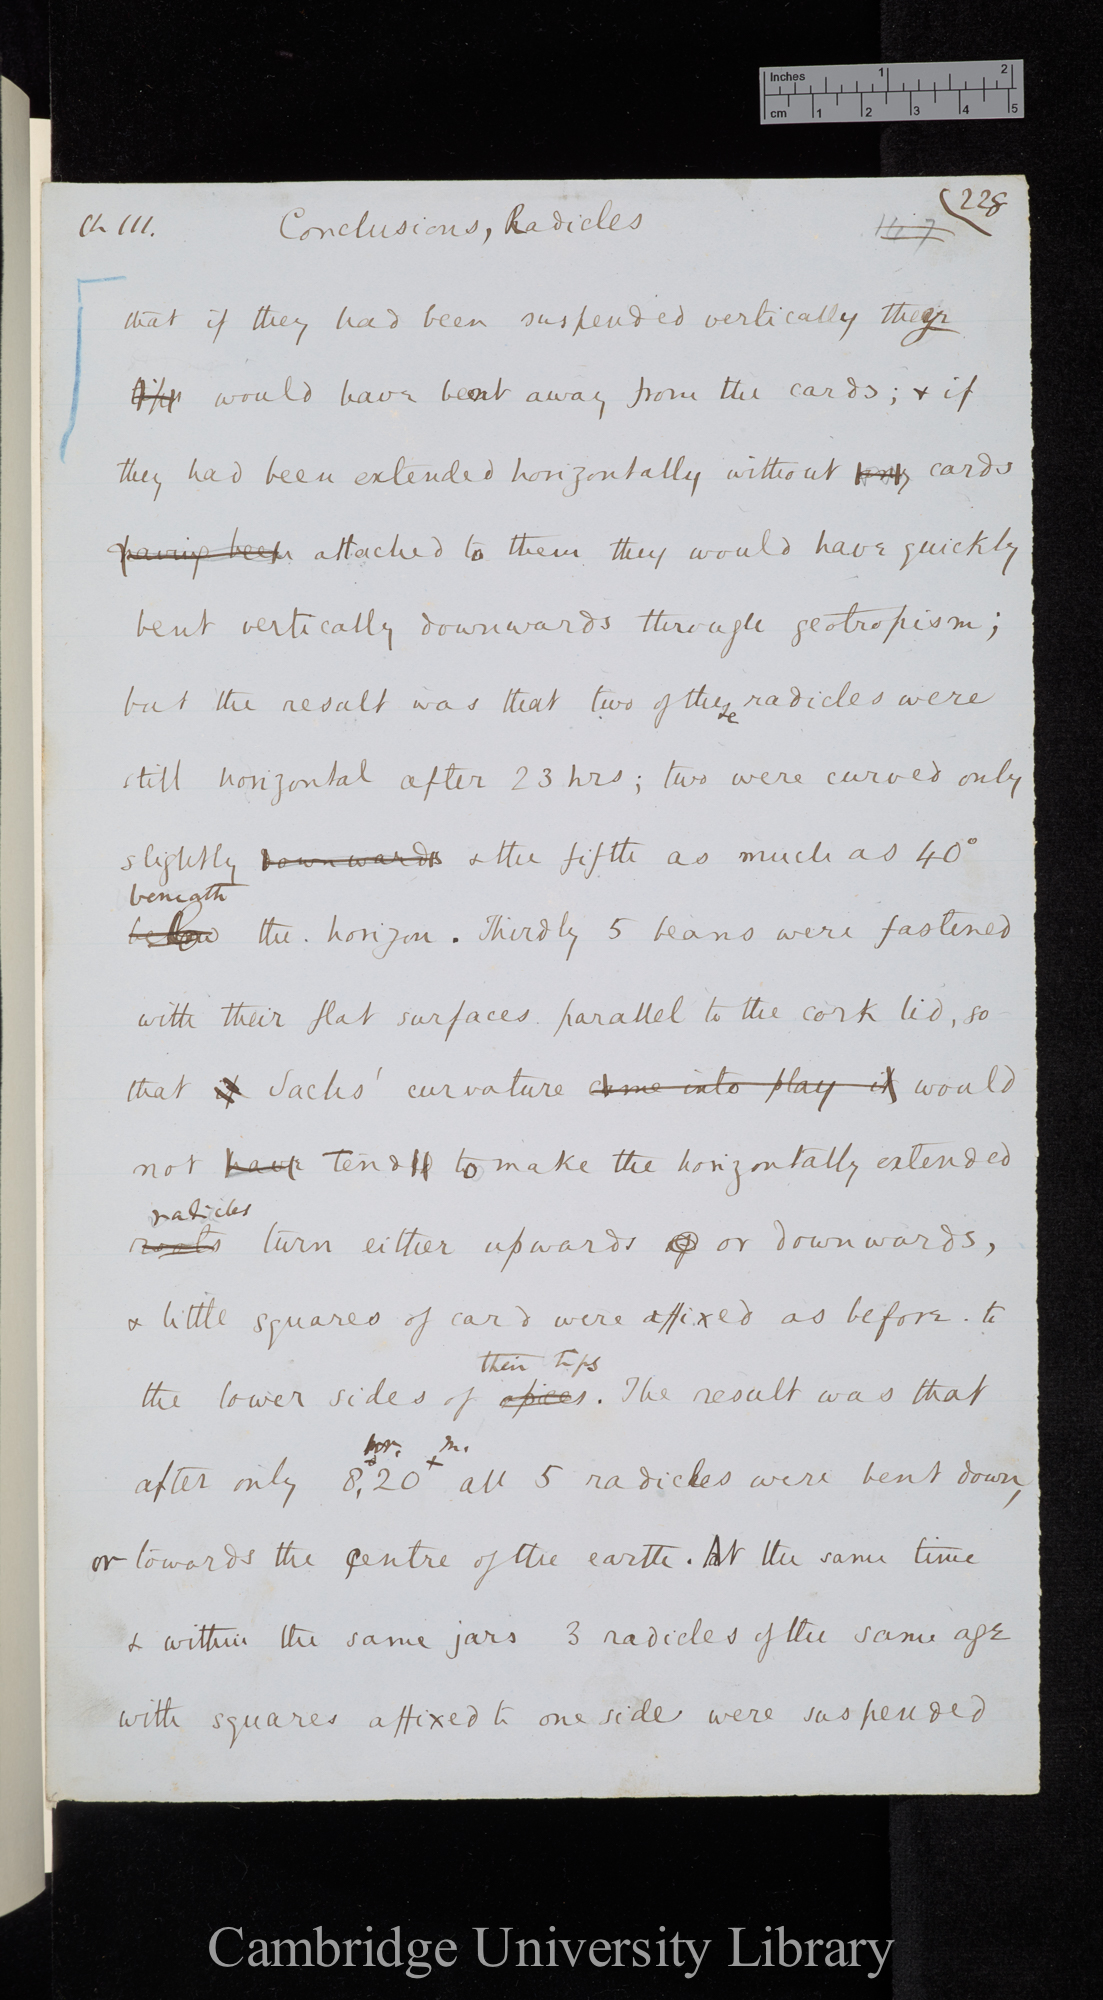 Inches 1 2
cm 1 2 3 4 5
Ch III. Conclusions, Radicles 228
that if they had been suspended vertically they
would have bent away from the cards; & if
they had been extended horizontally without any cards
having been attached to them they would have quickly
bent vertically downwards through geotropism;
but the result was that two of these radicles were
still horizontal after 23 hrs; two were curved only
slightly downwards & the fifth as much as 40°
beneath
below the horizon. Thirdly 5 beans were fastened
with their flat surfaces parallel to the cork lid, so
that if Sachs' curvature came into play it would
not have tend to make the horizontally extended
radicles
roots turn either upwards or downwards,
& little squares of card were affixed as before to
their tips
the lower sides of apices. The result was that
hr. m.
after only 8,20 all 5 radicles were bent down,
or towards the centre of the earth. At the same time
& within the same jars 3 radicles of the same age
with squares affixed to one side were suspended
Cambridge University Library